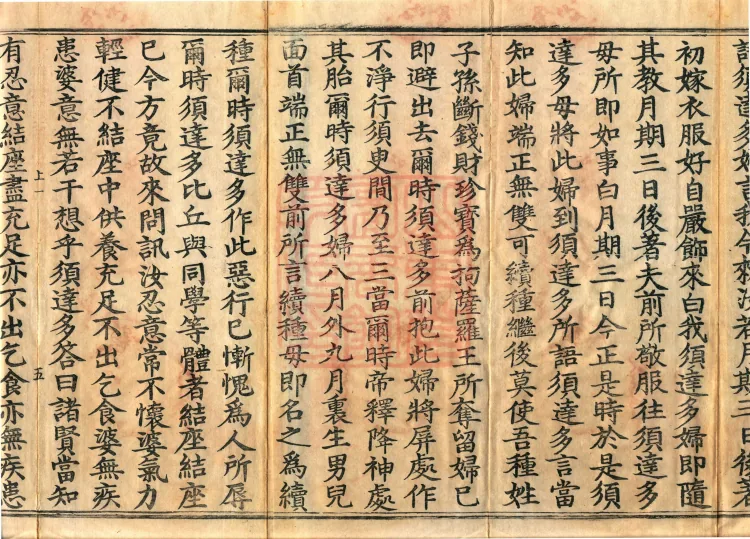 月期三日後著
初嫁衣服好自嚴飾來白我須達多婦即隨
其教月期三日後著夫前所敬服往須達多
母所即如事白月期三日今正是時於是須
達多母將此婦到須達多所語須達多言當
知此婦端正無雙可續種繼後莫使吾種姓
子孫斷錢財珍寶爲拘薩羅王所奪留婦已
即避出去爾時須達多前抱此婦將屏處作
不淨行須臾間乃至三當爾時帝釋降神處
其胎爾時須達多婦八月外九月裏生男兒
面首端正無雙前所言續種母即名之爲續
種爾時須達多作此惡行已慚愧爲人所辱
爾時須達多比丘與同學等體者結座結座
已今方竟故來問訊汝忍意常不懷婆氣力
輕健不結座中供養充足不出乞食婆無疾
患婆意無若干想乎須達多答曰諸賢當知
上一 五
有忍意結座盡充足亦不出乞食亦無疾患